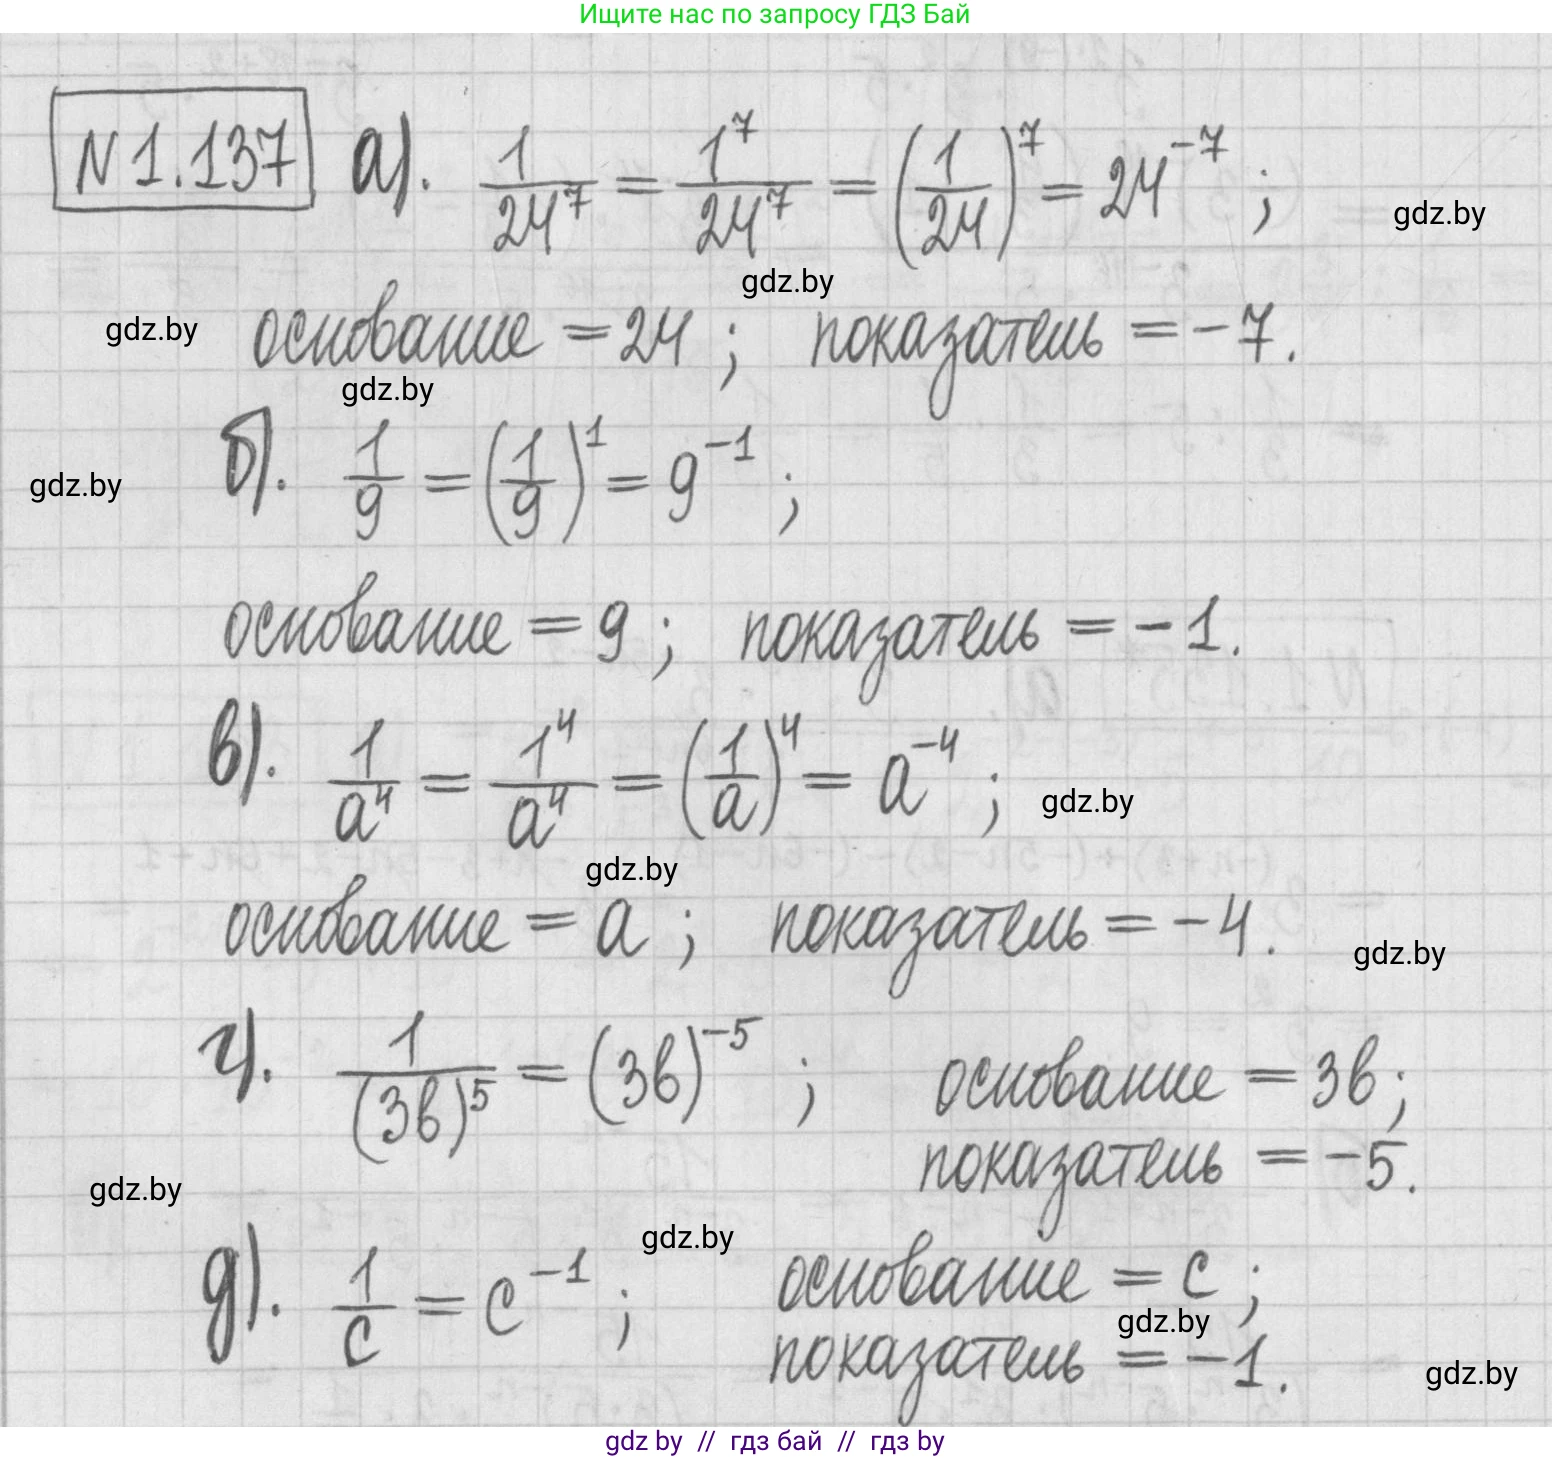 Ищите нас по запросу ГДЗ Бай
N 1.137 а). 1/24^7 = 1^7/24^7 = (1/24)^7 = 24^-7 ;
gdz.by
gdz.by
gdz.by
основание = 24 ; показатель = -7.
gdz.by
б). 1/9 = (1/9)^1 = 9^-1 ;
gdz.by
основание = 9 ; показатель = -1.
в). 1/a^4 = 1^4/a^4 = (1/a)^4 = a^-4 ;
gdz.by
gdz.by
основание = a ; показатель = -4.
gdz.by
г). 1/(3в)^5 = (3в)^-5 ; основание = 3в ;
показатель = -5.
gdz.by
gdz.by
д). 1/c = c^-1 ; основание = c ;
gdz.by
показатель = -1.
gdz.by
gdz by // гдз бай // гдз by